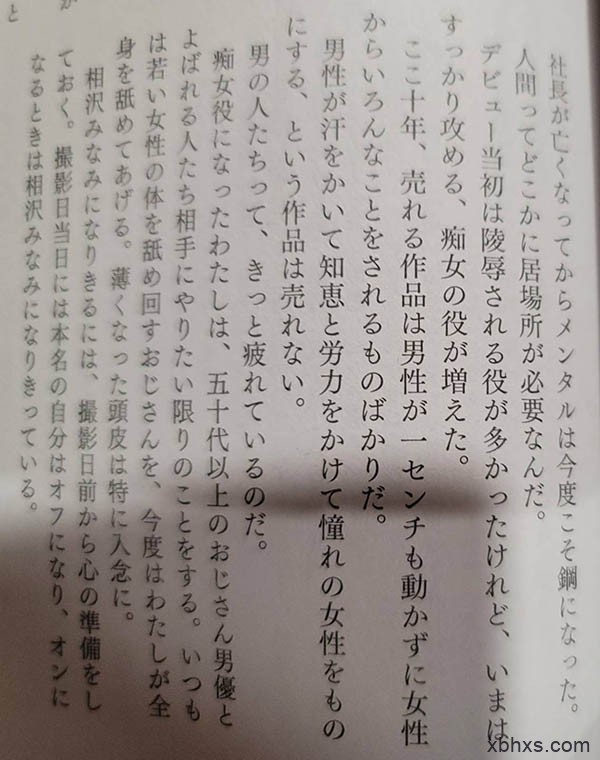 社長が亡くなってからメンタルは今度こそ鋼になった。
人間ってどこかに居場所が必要なんだ。
デビュー当初は陵辱される役が多かったけれど、いまは
すっかり攻める、痴女の役が増えた。
ここ十年、売れる作品は男性が一センチも動かずに女性
からいろんなことをされるものばかりだ。
男性が汗をかいて知恵と労力をかけて憧れの女性をもの
にする、という作品は売れない。
男の人たちって、きっと疲れているのだ。
痴女役になったわたしは、五十代以上のおじさん男優と
よばれる人たち相手にやりたい限りのことをする。いつも
は若い女性の体を舐め回すおじさんを、今度はわたしが全
身を舐めてあげる。薄くなった頭皮は特に入念に。
相沢みなみになりきるには、撮影日前から心の準備をし
ておく。撮影日当日には本名の自分はオフになり、オンに
なるときは相沢みなみになりきっている。
が
と
xbhxs.com